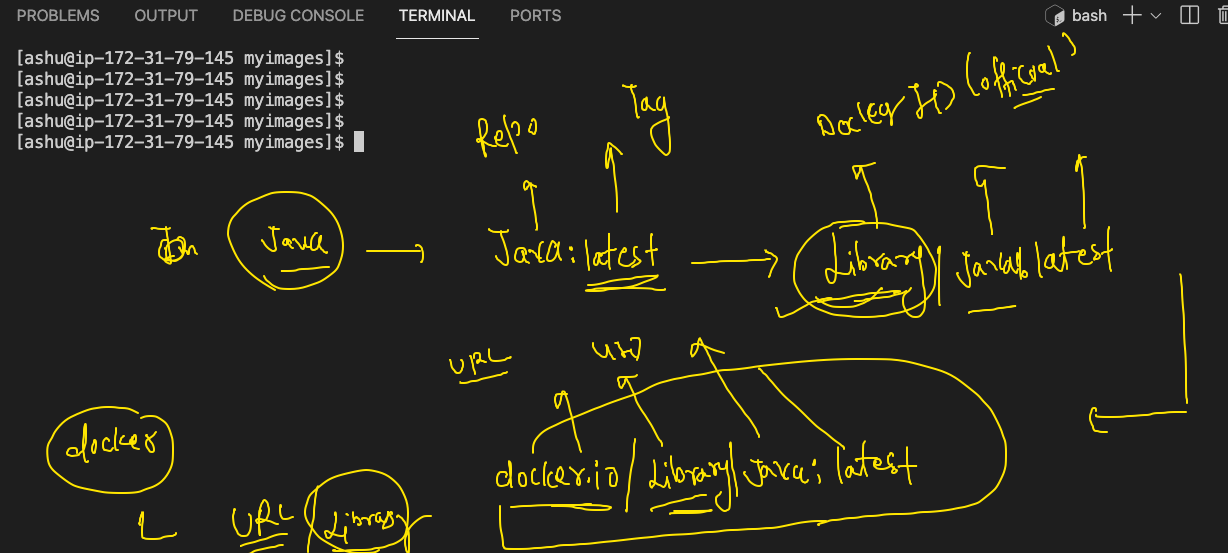 PROBLEMS OUTPUT DEBUG CONSOLE TERMINAL PORTS bash
[ashu@ip-172-31-79-145 myimages]$
[ashu@ip-172-31-79-145 myimages]$
[ashu@ip-172-31-79-145 myimages]$
[ashu@ip-172-31-79-145 myimages]$
[ashu@ip-172-31-79-145 myimages]$
Repo Tag Docker ID (official)
Java Java:latest Library/Java:latest
URL
docker docker.io/Library/Java:latest
URL Library